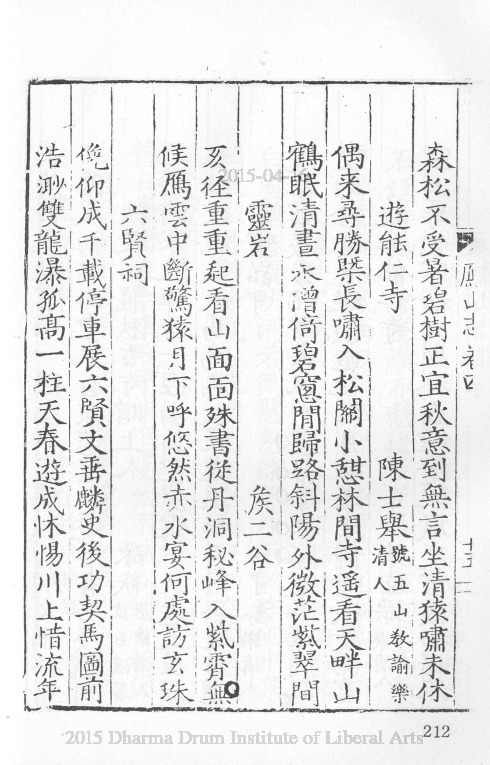 鴈山志卷四
十五
森松不受暑碧樹正宜秋意到無言坐清猿嘯未休
遊能仁寺 陳士舉號五山教諭樂清人
偶来尋勝槩長嘯入松關小憩林間寺遥看天畔山
鶴眠清晝水僧倚碧窓閒歸路斜陽外微茫紫翠間
靈岩 矦二谷
亥徑重重起看山面面殊書従丹洞秘峰入紫霄無
候鴈雲中斷驚猿月下呼悠然赤水宴何處訪玄珠
六賢祠
俛仰成千載停車展六賢文垂麟史後功契馬圖前
浩渺雙龍瀑孤高一柱天春遊成怵惕川上惜流年
212
2015-04-
2015 Dharma Drum Institute of Liberal Arts